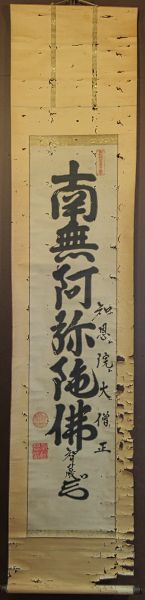 南無阿弥陀佛
知恩院大僧正